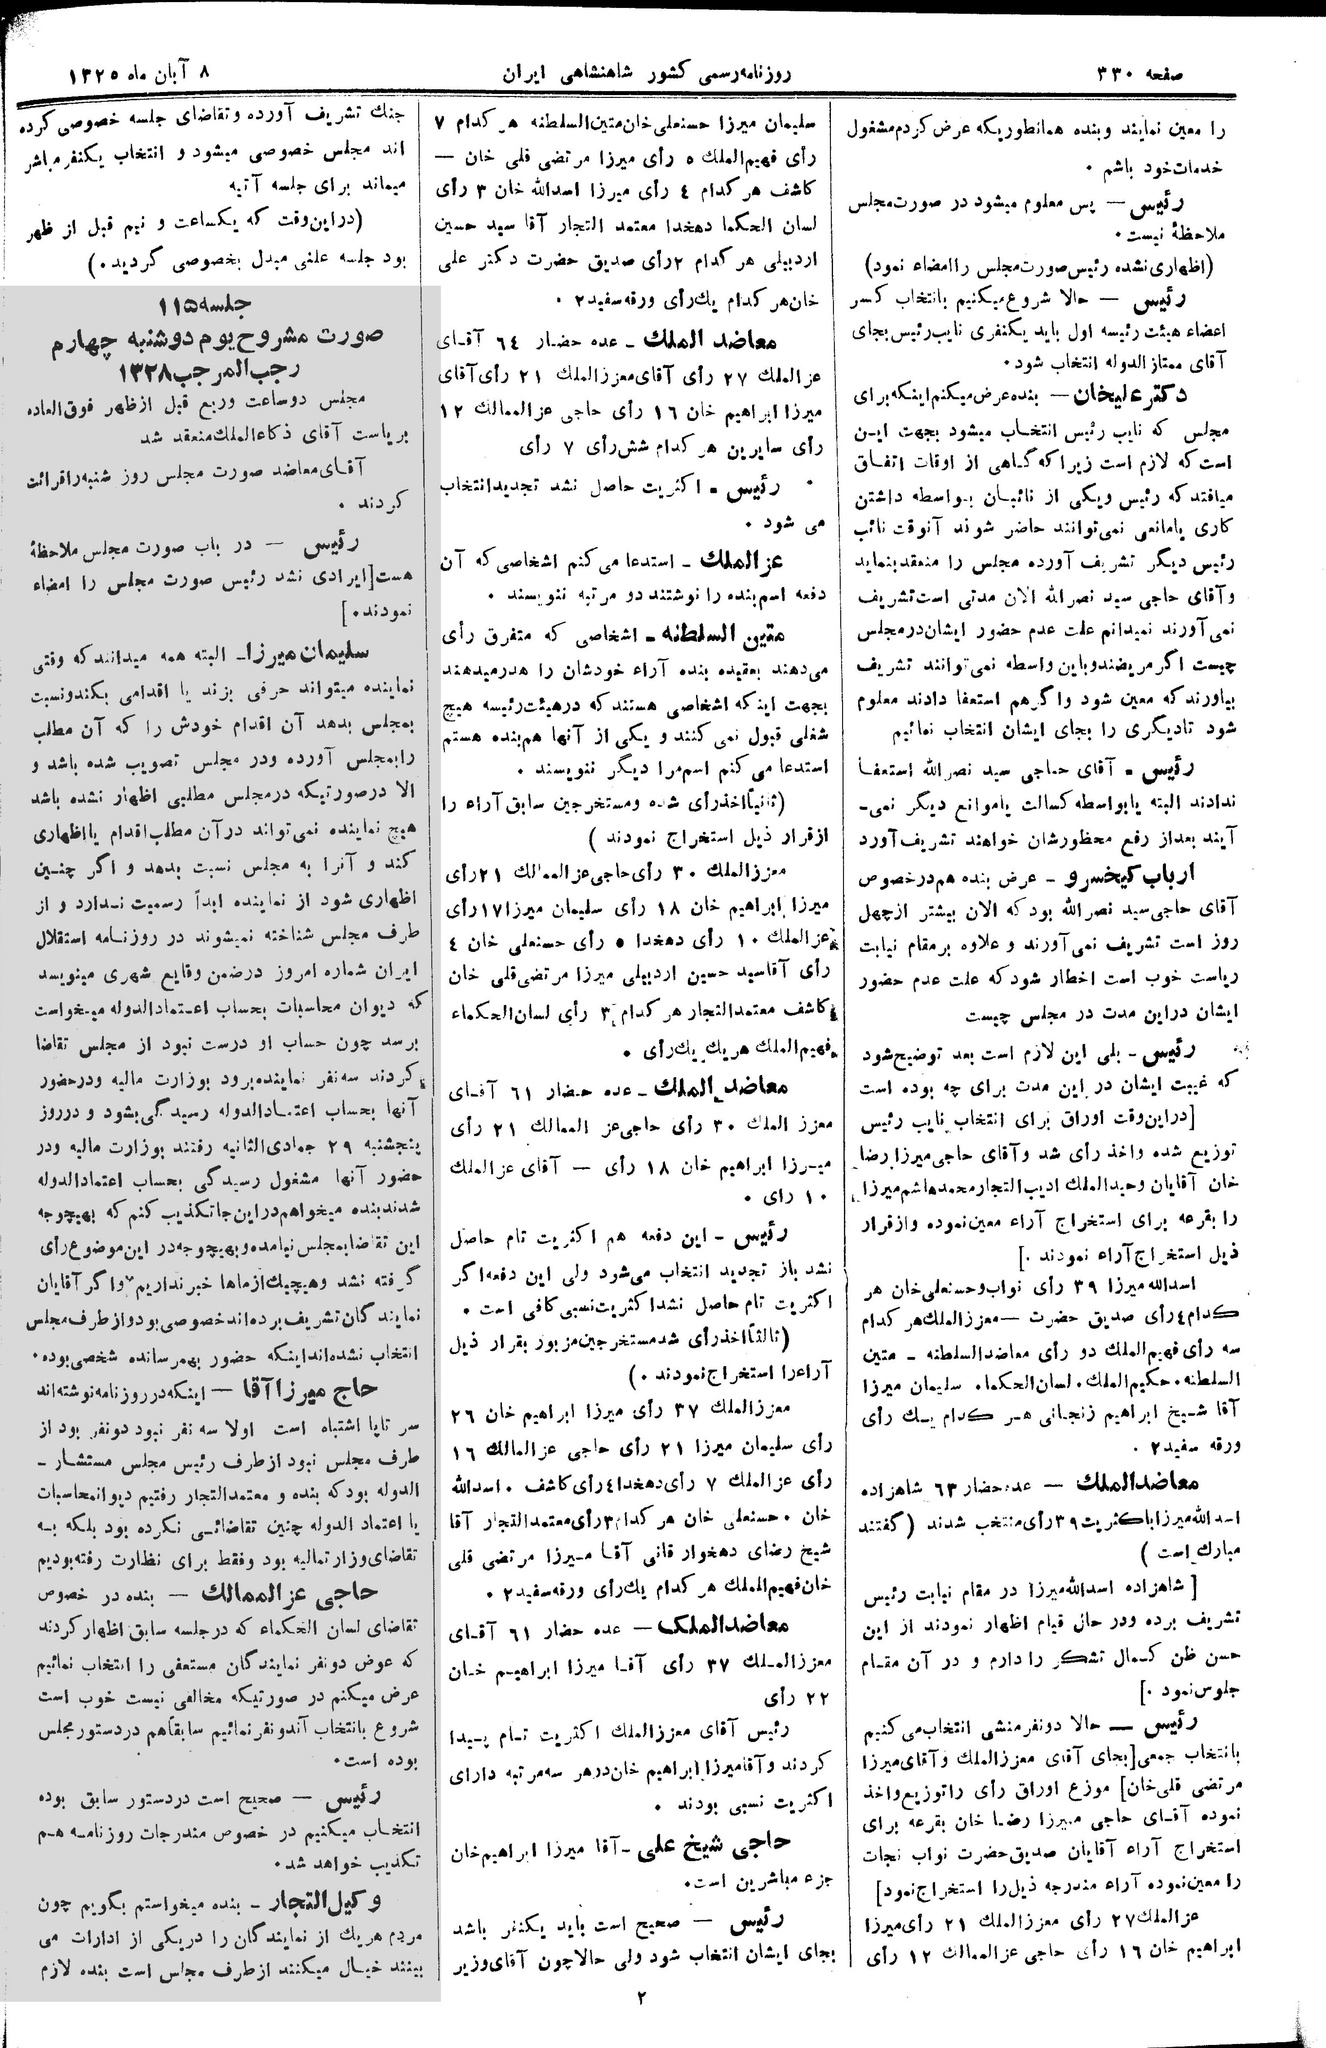 صفحه ۳۳۰
روزنامه رسمی کشور شاهنشاهی ایران
۸ آبان ماه ۱۳۲۵
را معین نمایند و بنده همانطوریکه عرض کردم مشغول
خدمات خود باشم .
رئیس — پس معلوم میشود در صورت مجلس
ملاحظهٔ نیست .
(اظهاری نشده رئیس صورت مجلس را امضاء نمود)
رئیس — حالا شروع میکنیم بانتخاب کسر
اعضاء هیئت رئیسه اول باید یکنفری نایب رئیس بجای
آقای ممتاز الدوله انتخاب شود .
دکتر علیخان — بنده عرض میکنم اینکه برای
مجلس که نایب رئیس انتخاب میشود بجهت این
است که لازم است زیرا که گاهی از اوقات اتفاق
میافتد که رئیس و یکی از نائبان بواسطه داشتن
کاری یا مانعی نمی‌توانند حاضر شوند آنوقت نائب
رئیس دیگر تشریف آورده مجلس را منعقد بنماید
و آقای حاجی سید نصر الله الان مدتی است تشریف
نمی آورند نمیدانم علت عدم حضور ایشان در مجلس
چیست اگر مریضند و باین واسطه نمی توانند تشریف
بیاورند که معین شود و اگر هم استعفا دادند معلوم
شود تا دیگری را بجای ایشان انتخاب نمائیم
رئیس - آقای حاجی سید نصر الله استعفا
ندادند البته یا بواسطه کسالت یا موانع دیگر نمی-
آیند بعد از رفع محظورشان خواهند تشریف آورد
ارباب کیخسرو - عرض بنده هم در خصوص
آقای حاجی سید نصر الله بود که الان بیشتر از چهل
روز است تشریف نمی آورند و علاوه بر مقام نیابت
ریاست خوب است اخطار شود که علت عدم حضور
ایشان در این مدت در مجلس چیست
رئیس - بلی این لازم است بعد توضیح شود
که غیبت ایشان در این مدت برای چه بوده است
[در این وقت اوراق برای انتخاب نایب رئیس
توزیع شده و اخذ رأی شد و آقای حاجی میرزا رضا
خان آقایان وحید الملک ادیب التجار محمد هاشم میرزا
را بقرعه برای استخراج آراء معین نموده و از قرار
ذیل استخراج آراء نمودند .]
اسد الله میرزا ۳۹ رأی نواب و حسنعلی خان هر
کدام ۴ رأی صدیق حضرت — معزز الملک هر کدام
سه رأی فهیم الملک دو رأی معاضد السلطنه - متین
السلطنه . حکیم الملک . لسان الحکما . سلیمان میرزا
آقا شیخ ابراهیم زنجانی هر کدام یک رأی
ورقه سفید ۲ .
معاضد الملک — عده حضار ۶۳ شاهزاده
اسد الله میرزا با کثریت ۳۹ رأی منتخب شدند (گفتند
مبارک است )
[ شاهزاده اسد الله میرزا در مقام نیابت رئیس
تشریف برده و در حال قیام اظهار نمودند از این
حسن ظن کمال تشکر را دارم و در آن مقام
جلوس نمود .]
رئیس — حالا دو نفر منشی انتخاب می کنیم
بانتخاب جمعی [بجای آقای معزز الملک و آقای میرزا
مرتضی قلی خان] موزع اوراق رأی را توزیع و اخذ
نموده آقای حاجی میرزا رضا خان بقرعه برای
استخراج آراء آقایان صدیق حضرت نواب نجات
را معین نموده آراء مندرجه ذیل را استخراج نمود]
عز الملک ۲۷ رأی معزز الملک ۲۱ رأی میرزا
ابراهیم خان ۱۶ رأی حاجی عز الممالک ۱۲ رأی
سلیمان میرزا حسنعلی خان متین السلطنه هر کدام ۷
رأی فهیم الملک ۵ رأی میرزا مرتضی قلی خان —
کاشف هر کدام ۴ رأی میرزا اسد الله خان ۳ رأی
لسان الحکما دهخدا معتمد التجار آقا سید حسین
اردبیلی هر کدام ۲ رأی صدیق حضرت دکتر علی
خان هر کدام یک رأی ورقه سفید ۲ .
معاضد الملک - عده حضار ۶۴ آقای
عز الملک ۲۷ رأی آقای معزز الملک ۲۱ رأی آقای
میرزا ابراهیم خان ۱۶ رأی حاجی عز الممالک ۱۲
رأی سایرین هر کدام شش رأی ۷ رأی
رئیس - اکثریت حاصل نشد تجدید انتخاب
می شود .
عز الملک - استدعا می کنم اشخاصی که آن
دفعه اسم بنده را نوشتند دو مرتبه ننویسند .
متین السلطنه - اشخاصی که متفرق رأی
می‌دهند بعقیده بنده آراء خودشان را هدر میدهند
بجهت اینکه اشخاصی هستند که در هیئت رئیسه هیچ
شغلی قبول نمی کنند و یکی از آنها هم بنده هستم
استدعا می کنم اسم مرا دیگر ننویسند .
(ثانیاً اخذ رأی شده و مستخرجین سابق آراء را
از قرار ذیل استخراج نمودند )
معزز الملک ۳۰ رأی حاجی عز الممالک ۲۱ رأی
میرزا ابراهیم خان ۱۸ رأی سلیمان میرزا ۱۷ رأی
عز الملک ۱۰ رأی دهخدا ۵ رأی حسنعلی خان ۴
رأی آقا سید حسین اردبیلی میرزا مرتضی قلی خان
کاشف معتمد التجار هر کدام ۳ رأی لسان الحکماء
فهیم الملک هر یک یک رأی .
معاضد الملک - عده حضار ۶۱ آقای
معزز الملک ۳۰ رأی حاجی عز الممالک ۲۱ رأی
میرزا ابراهیم خان ۱۸ رأی — آقای عز الملک
۱۰ رای .
رئیس - این دفعه هم اکثریت تام حاصل
نشد باز تجدید انتخاب می شود ولی این دفعه اگر
اکثریت تام حاصل نشد اکثریت نسبی کافی است .
(ثالثاً اخذ رأی شد مستخرجین مزبور بقرار ذیل
آراء را استخراج نمودند .)
معزز الملک ۳۷ رأی میرزا ابراهیم خان ۲۶
رأی سلیمان میرزا ۲۱ رأی حاجی عز المالک ۱۶
رأی عز الملک ۷ رأی دهخدا ۴ رأی کاشف . اسد الله
خان . حسنعلی خان هر کدام ۳ رأی معتمد التجار آقا
شیخ رضای دهخوار قانی آقا میرزا مرتضی قلی
خان فهیم الملک هر کدام یک رأی ورقه سفید ۲ .
معاضد الملک — عده حضار ۶۱ آقای
معزز الملک ۳۷ رأی آقا میرزا ابراهیم خان
۲۲ رأی
رئیس آقای معزز الملک اکثریت تام پیدا
کردند و آقا میرزا ابراهیم خان در هر سه مرتبه دارای
اکثریت نسبی بودند .
حاجی شیخ علی - آقا میرزا ابراهیم خان
جزء مباشرین است .
رئیس — صحیح است باید یکنفر باشد
بجای ایشان انتخاب شود ولی حالا چون آقای وزیر
جنک تشریف آورده و تقاضای جلسه خصوصی کرده
اند مجلس خصوصی میشود و انتخاب یکنفر مباشر
میماند برای جلسه آتیه
(در این وقت که یکساعت و نیم قبل از ظهر
بود جلسه علنی مبدل بخصوصی گردید .)
جلسه ۱۱۵
صورت مشروح یوم دوشنبه چهارم
رجب المرجب ۱۳۲۸
مجلس دو ساعت و ربع قبل از ظهر فوق العاده
بریاست آقای ذکاء الملک منعقد شد
آقای معاضد صورت مجلس روز شنبه را قرائت
کردند .
رئیس — در باب صورت مجلس ملاحظهٔ
هست [ایرادی نشد رئیس صورت مجلس را امضاء
نمودند .]
سلیمان میرزا - البته همه میدانند که وقتی
نماینده میتواند حرفی بزند یا اقدامی بکند و نسبت
بمجلس بدهد آن اقدام خودش را که آن مطلب
را بمجلس آورده و در مجلس تصویب شده باشد و
الا در صورتیکه در مجلس مطلبی اظهار نشده باشد
هیچ نماینده نمی تواند در آن مطلب اقدام یا اظهاری
کند و آنرا به مجلس نسبت بدهد و اگر چنین
اظهاری شود از نماینده ابداً رسمیت ندارد و از
طرف مجلس شناخته نمیشوند در روزنامه استقلال
ایران شماره امروز در ضمن وقایع شهری مینویسد
که دیوان محاسبات بحساب اعتماد الدوله میخواست
برسد چون حساب او درست نبود از مجلس تقاضا
کردند سه نفر نماینده برود بوزارت مالیه و در حضور
آنها بحساب اعتماد الدوله رسیدگی بشود و در روز
پنجشنبه ۲۹ جمادی الثانیه رفتند بوزارت مالیه و در
حضور آنها مشغول رسیدگی بحساب اعتماد الدوله
شدند بنده میخواهم در این جا تکذیب کنم که بهیچوجه
این تقاضا بمجلس نیامده و بهیچوجه در این موضوع رأی
گرفته نشد و هیچیک از ماها خبر نداریم و اگر آقایان
نمایندگان تشریف برده اند خصوصی بود و از طرف مجلس
انتخاب نشده اند اینکه حضور بهم رسانده شخصی بوده .
حاج میرزا آقا — اینکه در روزنامه نوشته اند
سر تا پا اشتباه است اولا سه نفر نبود دو نفر بود از
طرف مجلس نبود از طرف رئیس مجلس مستشار -
الدوله بود که بنده و معتمد التجار رفتیم دیوانمحاسبات
با اعتماد الدوله چنین تقاضائی نکرده بود بلکه به
تقاضای وزارتمالیه بود و فقط برای نظارت رفته بودیم
حاجی عز الممالک — بنده در خصوص
تقاضای لسان الحکماء که در جلسه سابق اظهار کردند
که عوض دو نفر نمایندگان مستعفی را انتخاب نمائیم
عرض میکنم در صورتیکه مخالفی نیست خوب است
شروع بانتخاب آندو نفر نمائیم سابقاً هم در دستور مجلس
بوده است .
رئیس — صحیح است در دستور سابق بوده
انتخاب میکنیم در خصوص مندرجات روزنامه هم
تکذیب خواهد شد .
وکیل التجار - بنده میخواستم بگویم چون
مردم هر یک از نمایندگان را در یکی از ادارات می
بینند خیال میکنند از طرف مجلس است بنده لازم
۲